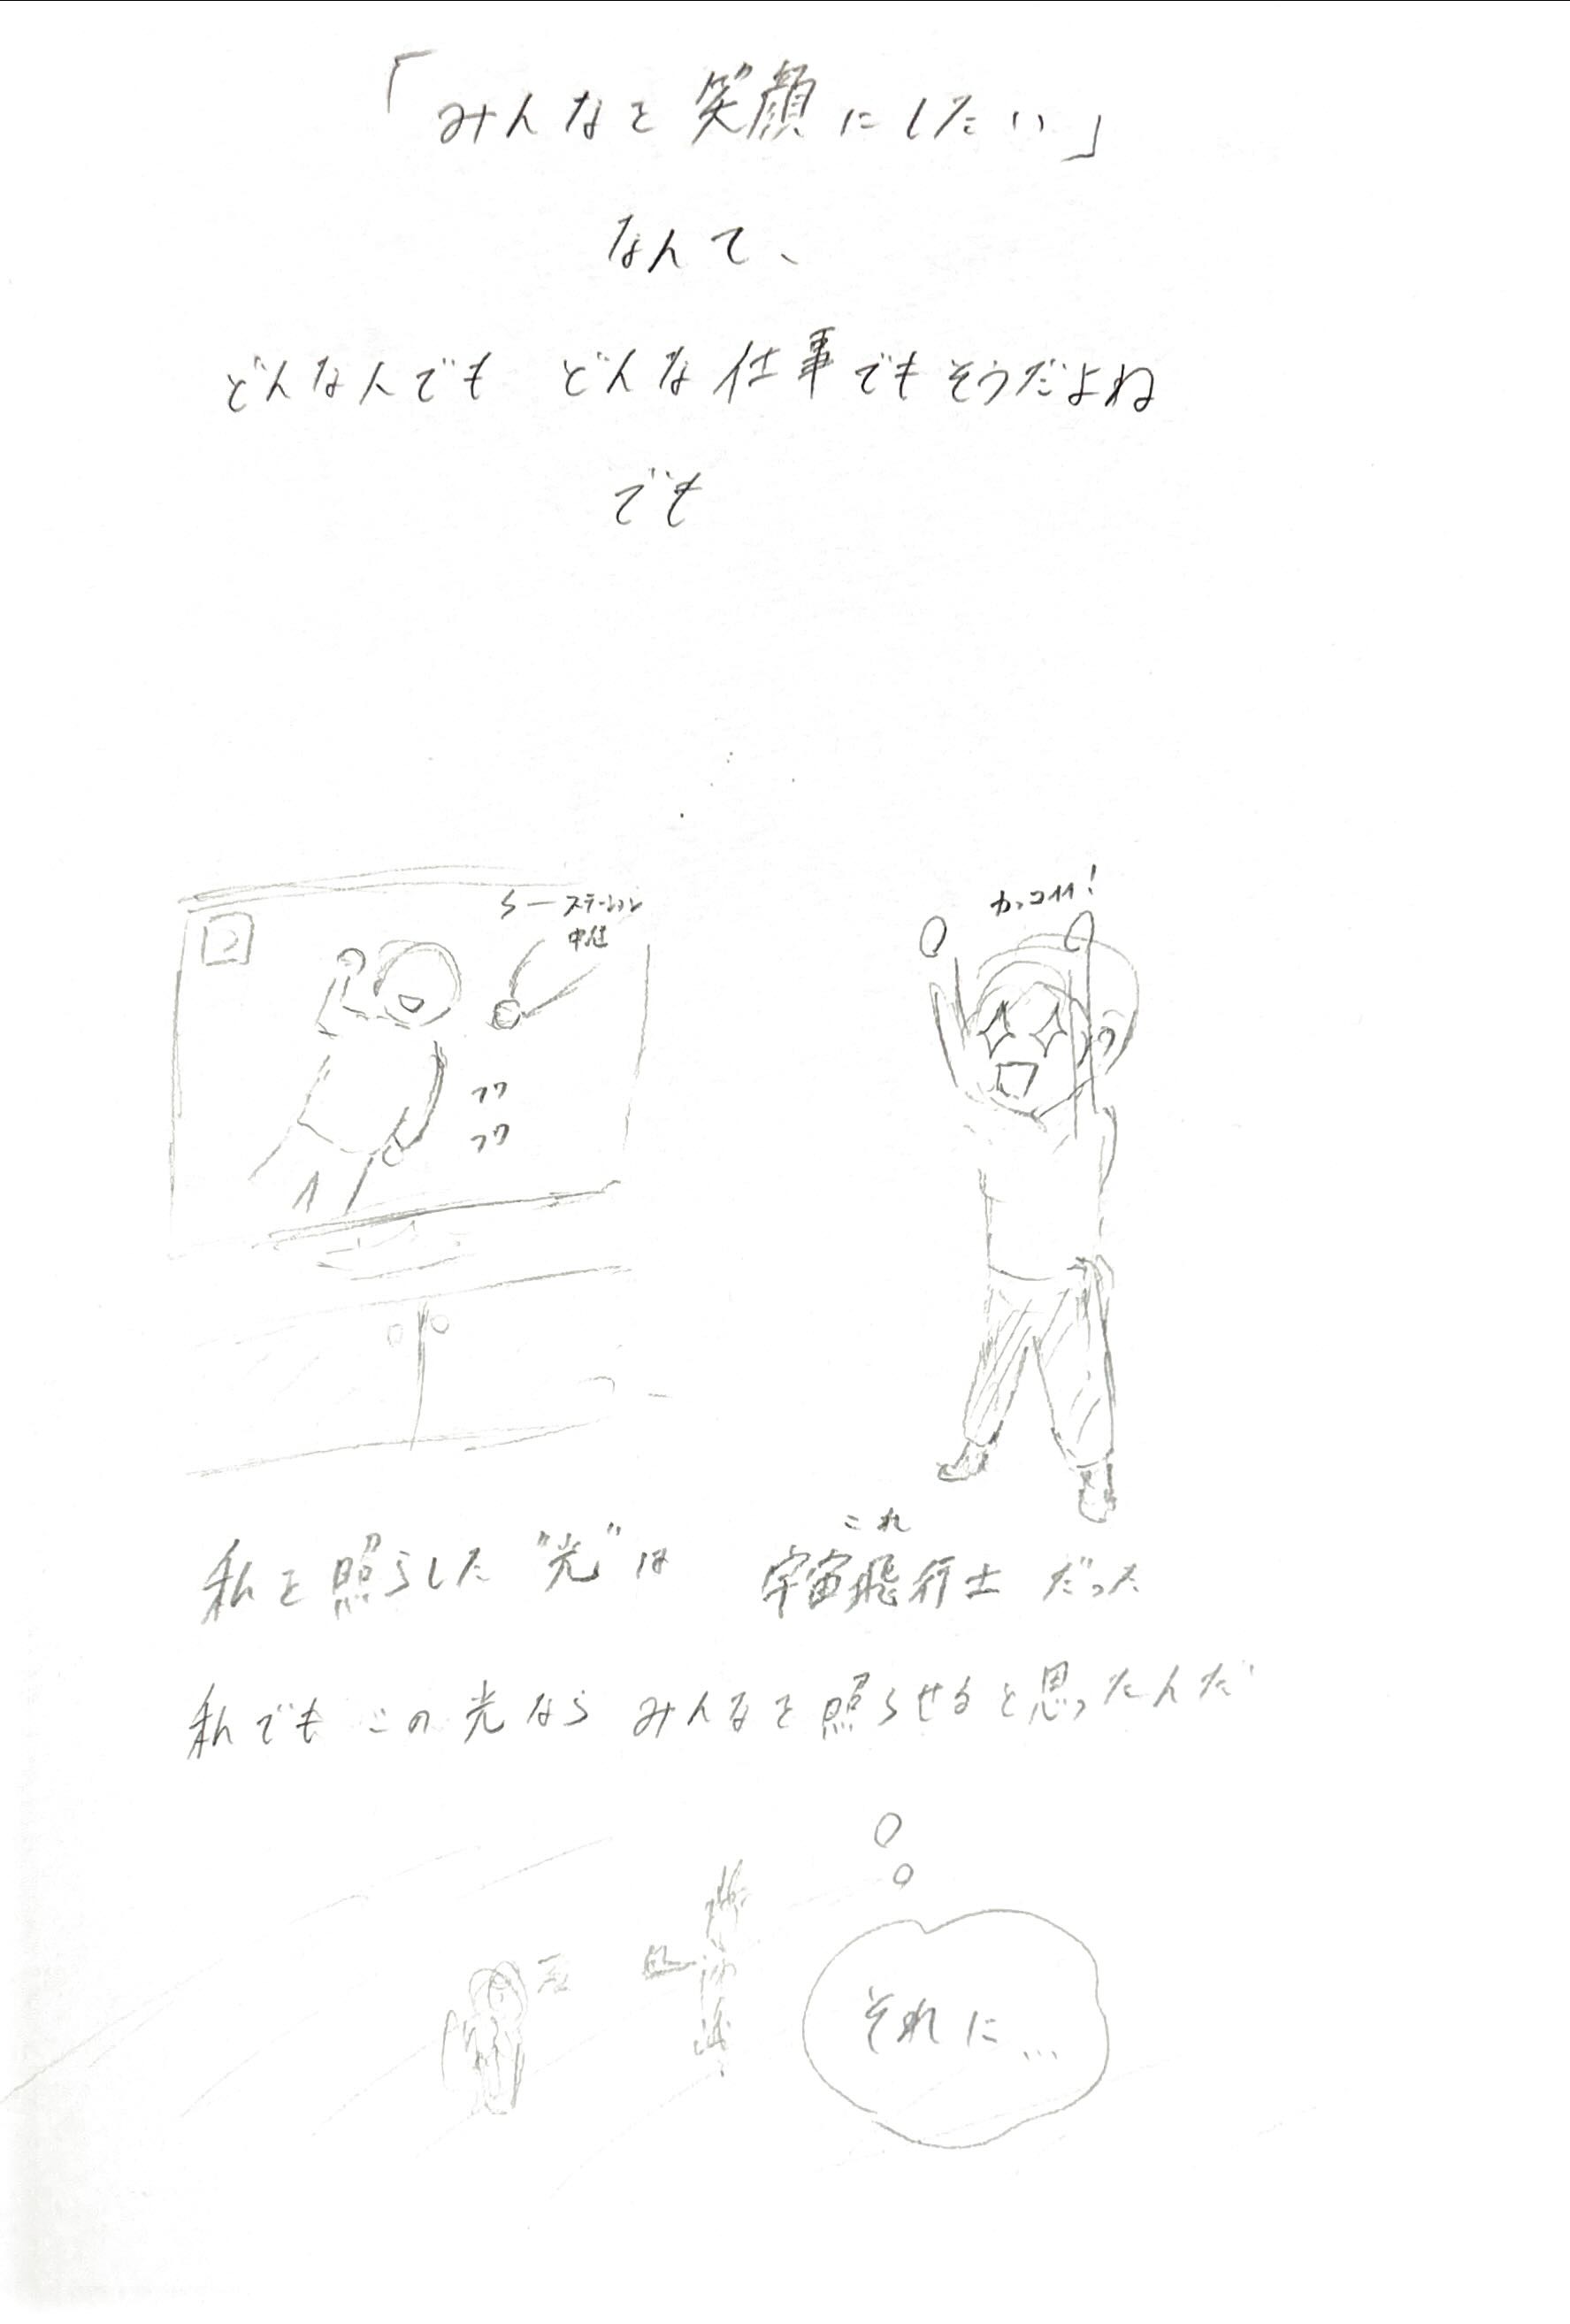 「みんなを笑顔にしたい」
なんて、
どんな人でも どんな仕事でもそうだよね
でも
ステーション
中継
カッコイイ!
フワ
フワ
私を照らした“光”は 宇宙飛行士 だった
これ
私でも この光なら みんなを照らせると思ったんだ
それに…